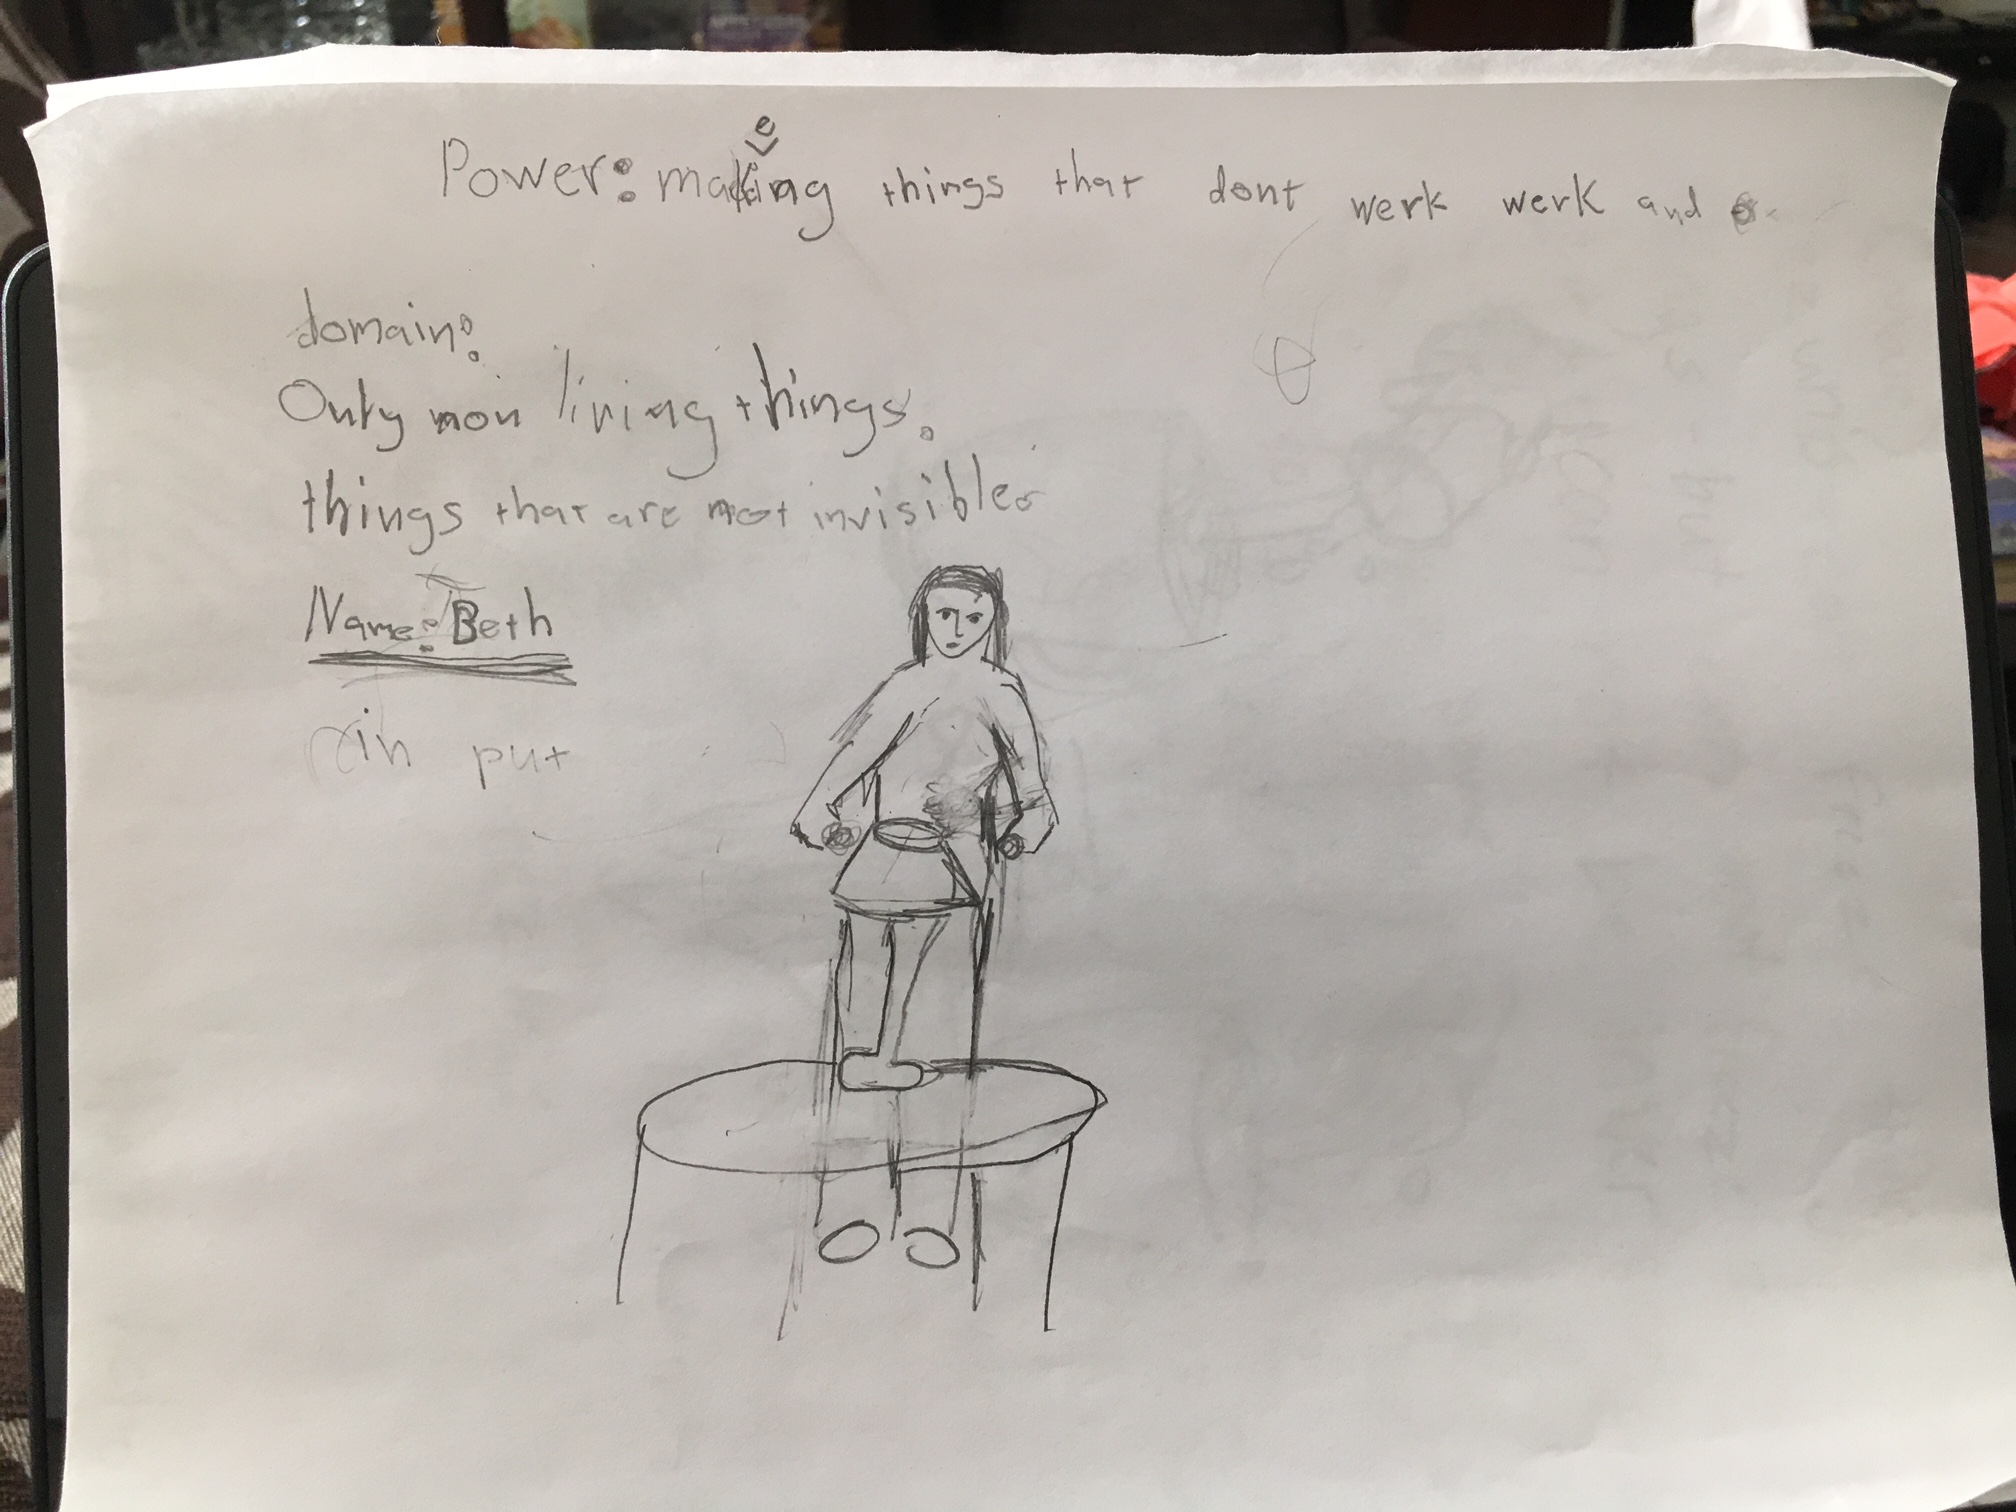 Power: makeing things that dont werk werk and
domain:
Only non living things.
things that are not invisible.
Name: Beth
in put